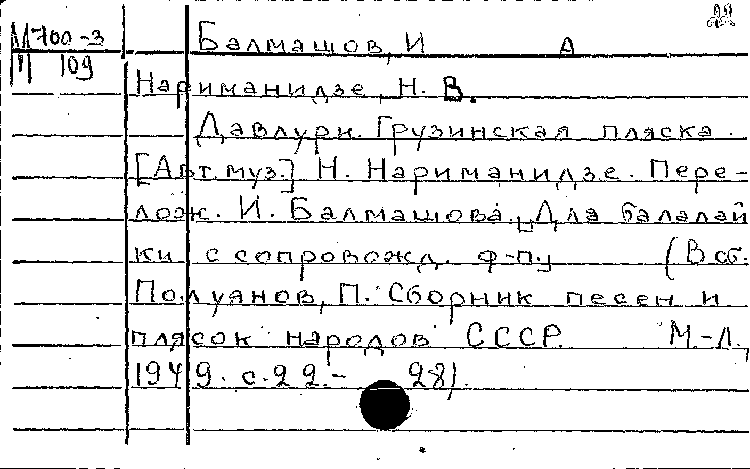 М700-3 Балмашов, И А
П 109
Нариманидзе, Н. В.
Давлури. Грузинская пляска.
[Авт. муз.] Н. Нариманидзе. Пере-
лож. И. Балмашова. Для балалай
ки с сопровожд. ф-п. (В сб.
Полуянов, П. Сборник песен и
плясок народов СССР. М.-Л.,
1949. с. 22.- 28).